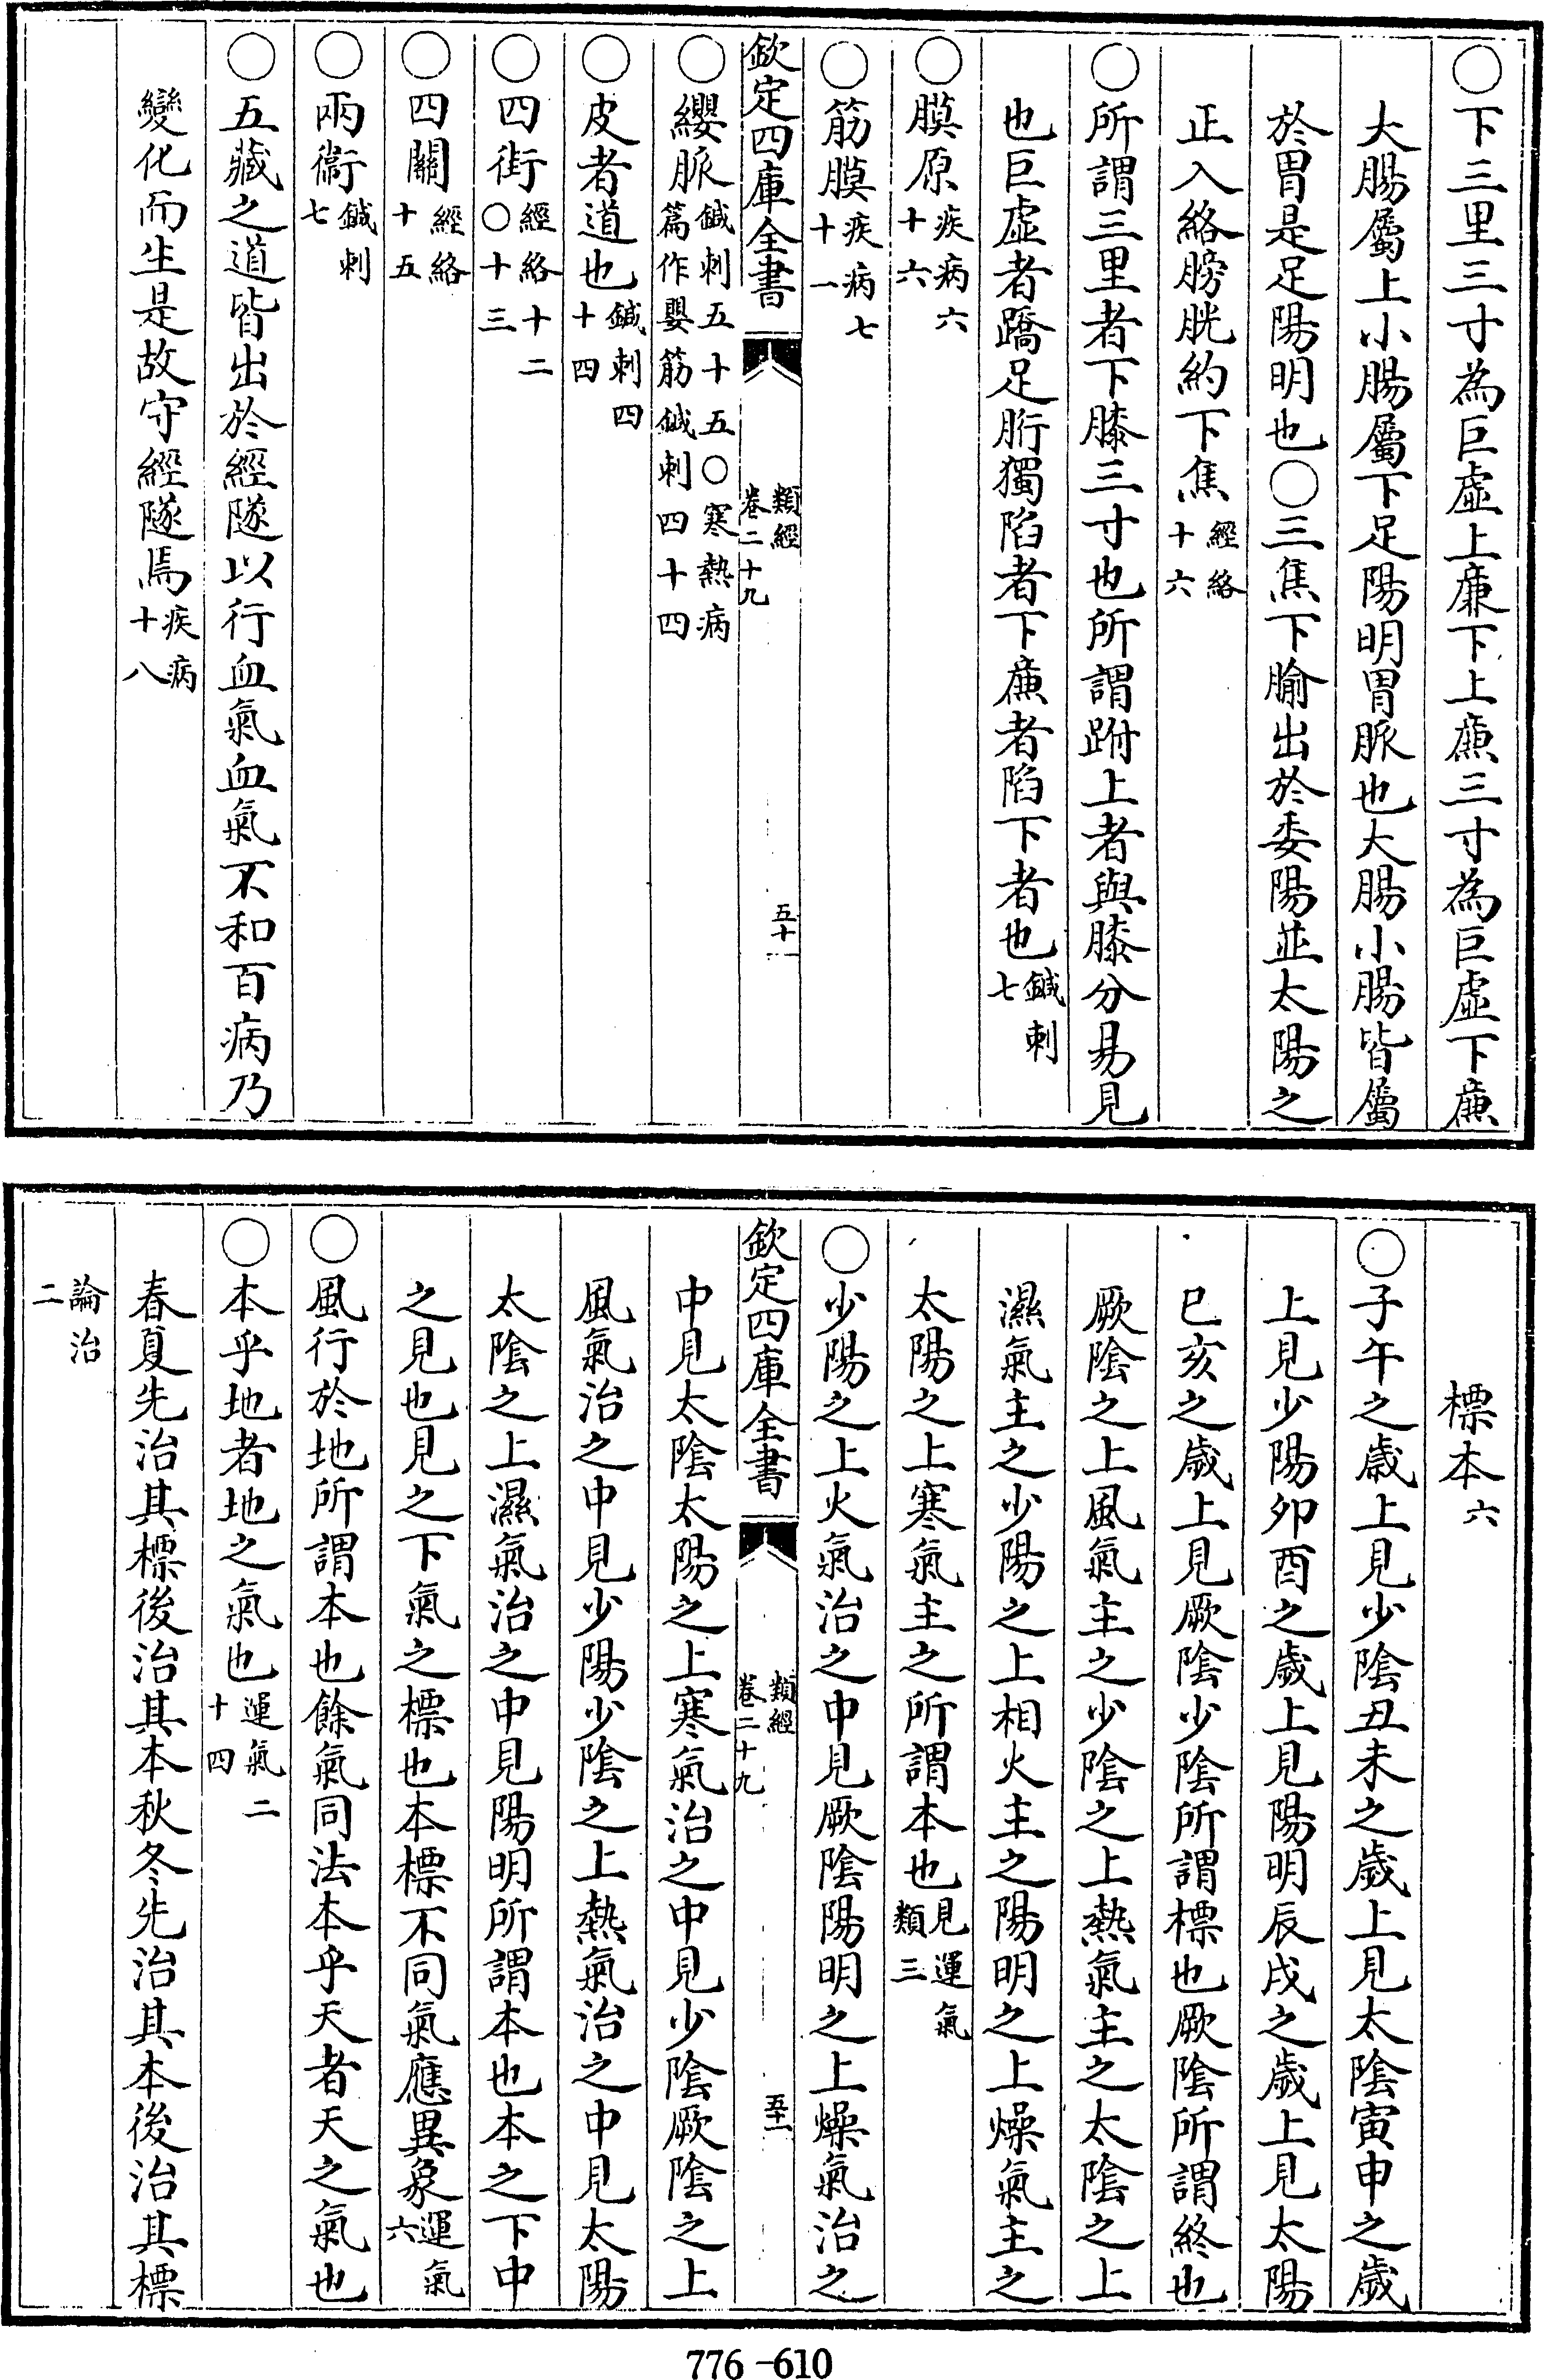 ○下三里三寸為巨虛上廉下上廉三寸為巨虛下廉
大腸屬上小腸屬下足陽明胃脈也大腸小腸皆屬
於胃是足陽明也○三焦下腧出於委陽並太陽之
正入絡膀胱約下焦經絡十六
○所謂三里者下膝三寸也所謂跗上者與膝分易見
也巨虛者蹻足胻獨陷者下廉者陷下者也鍼刺七
○膜原疾病六十六
○筋膜疾病七十一
欽定四庫全書 類經卷二十九 五十一
○纓脈鍼刺五十五○寒熱病篇作嬰筋鍼刺四十四
○皮者道也鍼刺四十四
○四街經絡十二○十三
○四關經絡十五
○兩衞鍼刺七
○五藏之道皆出於經隧以行血氣血氣不和百病乃
變化而生是故守經隧焉疾病十八
標本六
○子午之歲上見少陰丑未之歲上見太陰寅申之歲
上見少陽卯酉之歲上見陽明辰戌之歲上見太陽
巳亥之歲上見厥陰少陰所謂標也厥陰所謂終也
厥陰之上風氣主之少陰之上熱氣主之太陰之上
濕氣主之少陽之上相火主之陽明之上燥氣主之
太陽之上寒氣主之所謂本也見運氣類三
○少陽之上火氣治之中見厥陰陽明之上燥氣治之
欽定四庫全書 類經卷二十九 五十二
中見太陰太陽之上寒氣治之中見少陰厥陰之上
風氣治之中見少陽少陰之上熱氣治之中見太陽
太陰之上濕氣治之中見陽明所謂本也本之下中
之見也見之下氣之標也本標不同氣應異象運氣六
○風行於地所謂本也餘氣同法本乎天者天之氣也
○本乎地者地之氣也運氣二十四
春夏先治其標後治其本秋冬先治其本後治其標
論治二
776-610